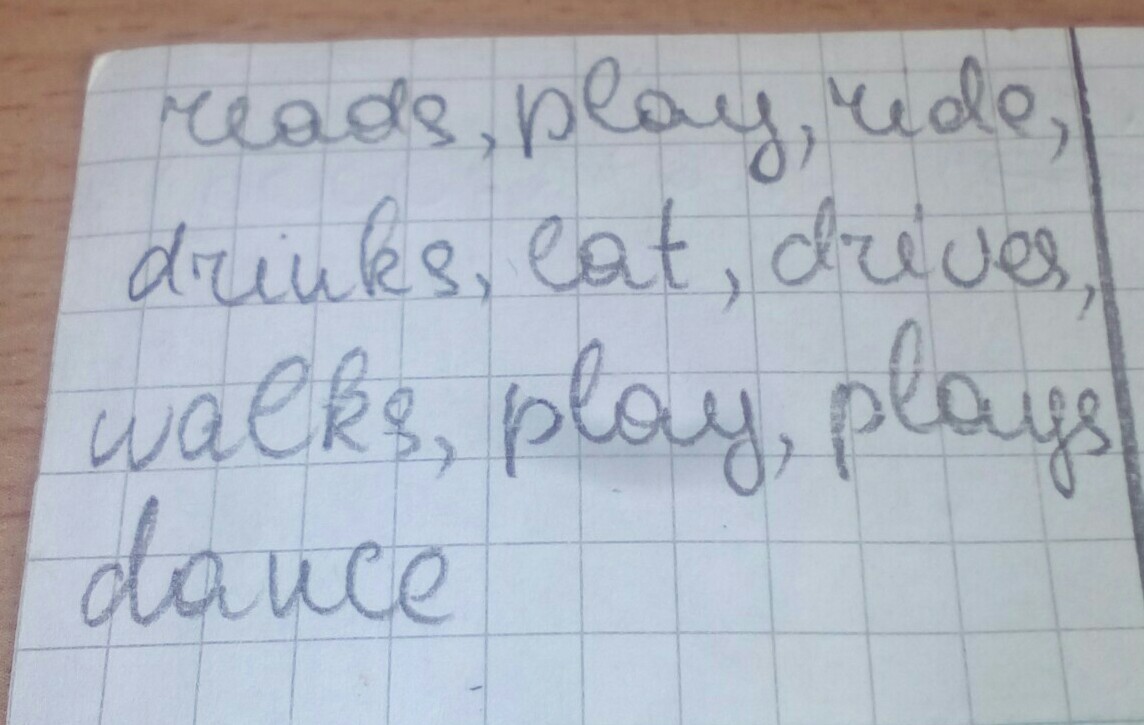 reads, play, ride,
drinks, eat, drives,
walks, play, plays
dance